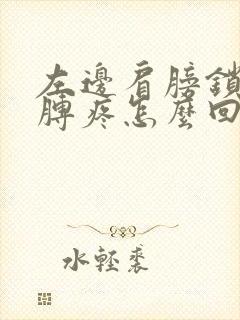 左邊肩膀鎖
膊疼怎麼回
水輕裘